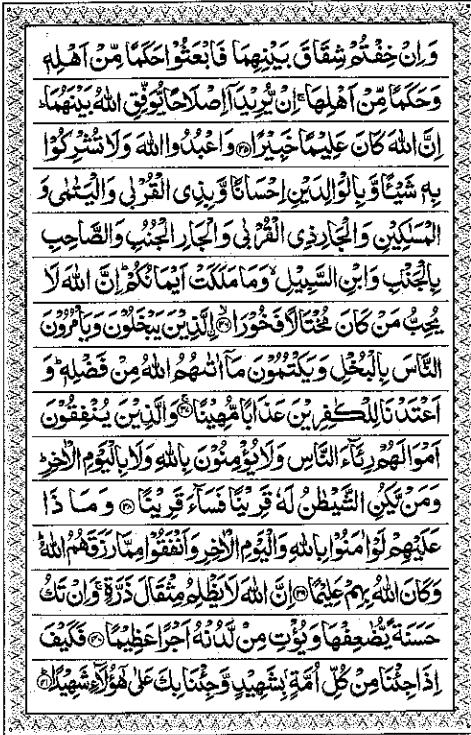 وَاِنْ خِفْتُمْ شِقَاقَ بَيْنِهِمَا فَابْعَثُوْا حَكَمًا مِّنْ اَهْلِهٖ
وَحَكَمًا مِّنْ اَهْلِهَا ۚ اِنْ يُّرِيْدَاۤ اِصْلَاحًا يُّوَفِّقِ اللّٰهُ بَيْنَهُمَا ؕ
اِنَّ اللّٰهَ كَانَ عَلِيْمًا خَبِيْرًا ۝۳۵ وَاعْبُدُوا اللّٰهَ وَلَا تُشْرِكُوْا
بِهٖ شَيْـًٔا وَّبِالْوَالِدَيْنِ اِحْسَانًا وَّبِذِى الْقُرْبٰى وَالْيَتٰمٰى وَ
الْمَسٰكِيْنِ وَالْجَارِ ذِى الْقُرْبٰى وَالْجَارِ الْجُنُبِ وَالصَّاحِبِ
بِالْجَنْۢبِ وَابْنِ السَّبِيْلِ ۙ وَمَا مَلَكَتْ اَيْمَانُكُمْ ؕ اِنَّ اللّٰهَ لَا
يُحِبُّ مَنْ كَانَ مُخْتَالًا فَخُوْرًا ۝۳۶ ۙ اِلَّذِيْنَ يَبْخَلُوْنَ وَيَاْمُرُوْنَ
النَّاسَ بِالْبُخْلِ وَيَكْتُمُوْنَ مَاۤ اٰتٰىهُمُ اللّٰهُ مِنْ فَضْلِهٖ ؕ وَ
اَعْتَدْنَا لِلْكٰفِرِيْنَ عَذَابًا مُّهِيْنًا ۝۳۷ ۚ وَالَّذِيْنَ يُنْفِقُوْنَ
اَمْوَالَهُمْ رِئَآءَ النَّاسِ وَلَا يُؤْمِنُوْنَ بِاللّٰهِ وَلَا بِالْيَوْمِ الْاٰخِرِ ؕ
وَمَنْ يَّكُنِ الشَّيْطٰنُ لَهٗ قَرِيْنًا فَسَآءَ قَرِيْنًا ۝۳۸ وَمَا ذَا
عَلَيْهِمْ لَوْ اٰمَنُوْا بِاللّٰهِ وَالْيَوْمِ الْاٰخِرِ وَاَنْفَقُوْا مِمَّا رَزَقَهُمُ اللّٰهُ ؕ
وَكَانَ اللّٰهُ بِهِمْ عَلِيْمًا ۝۳۹ اِنَّ اللّٰهَ لَا يَظْلِمُ مِثْقَالَ ذَرَّةٍ ۚ وَاِنْ تَكُ
حَسَنَةً يُّضٰعِفْهَا وَيُؤْتِ مِنْ لَّدُنْهُ اَجْرًا عَظِيْمًا ۝۴۰ فَكَيْفَ
اِذَا جِئْنَا مِنْ كُلِّ اُمَّةٍۭ بِشَهِيْدٍ وَّجِئْنَا بِكَ عَلٰى هٰٓؤُلَآءِ شَهِيْدًا ؕ۝۴۱